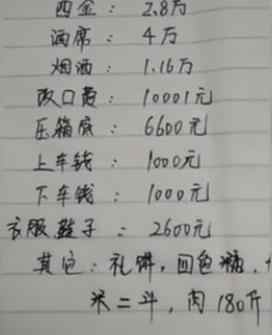 四金：2.8万
酒席：4万
烟酒：1.16万
改口费：10001元
压箱底：6600元
上车钱：1000元
下车钱：1000元
衣服鞋子：2600元
其它：礼饼，回包糖，
米二斗，肉180斤